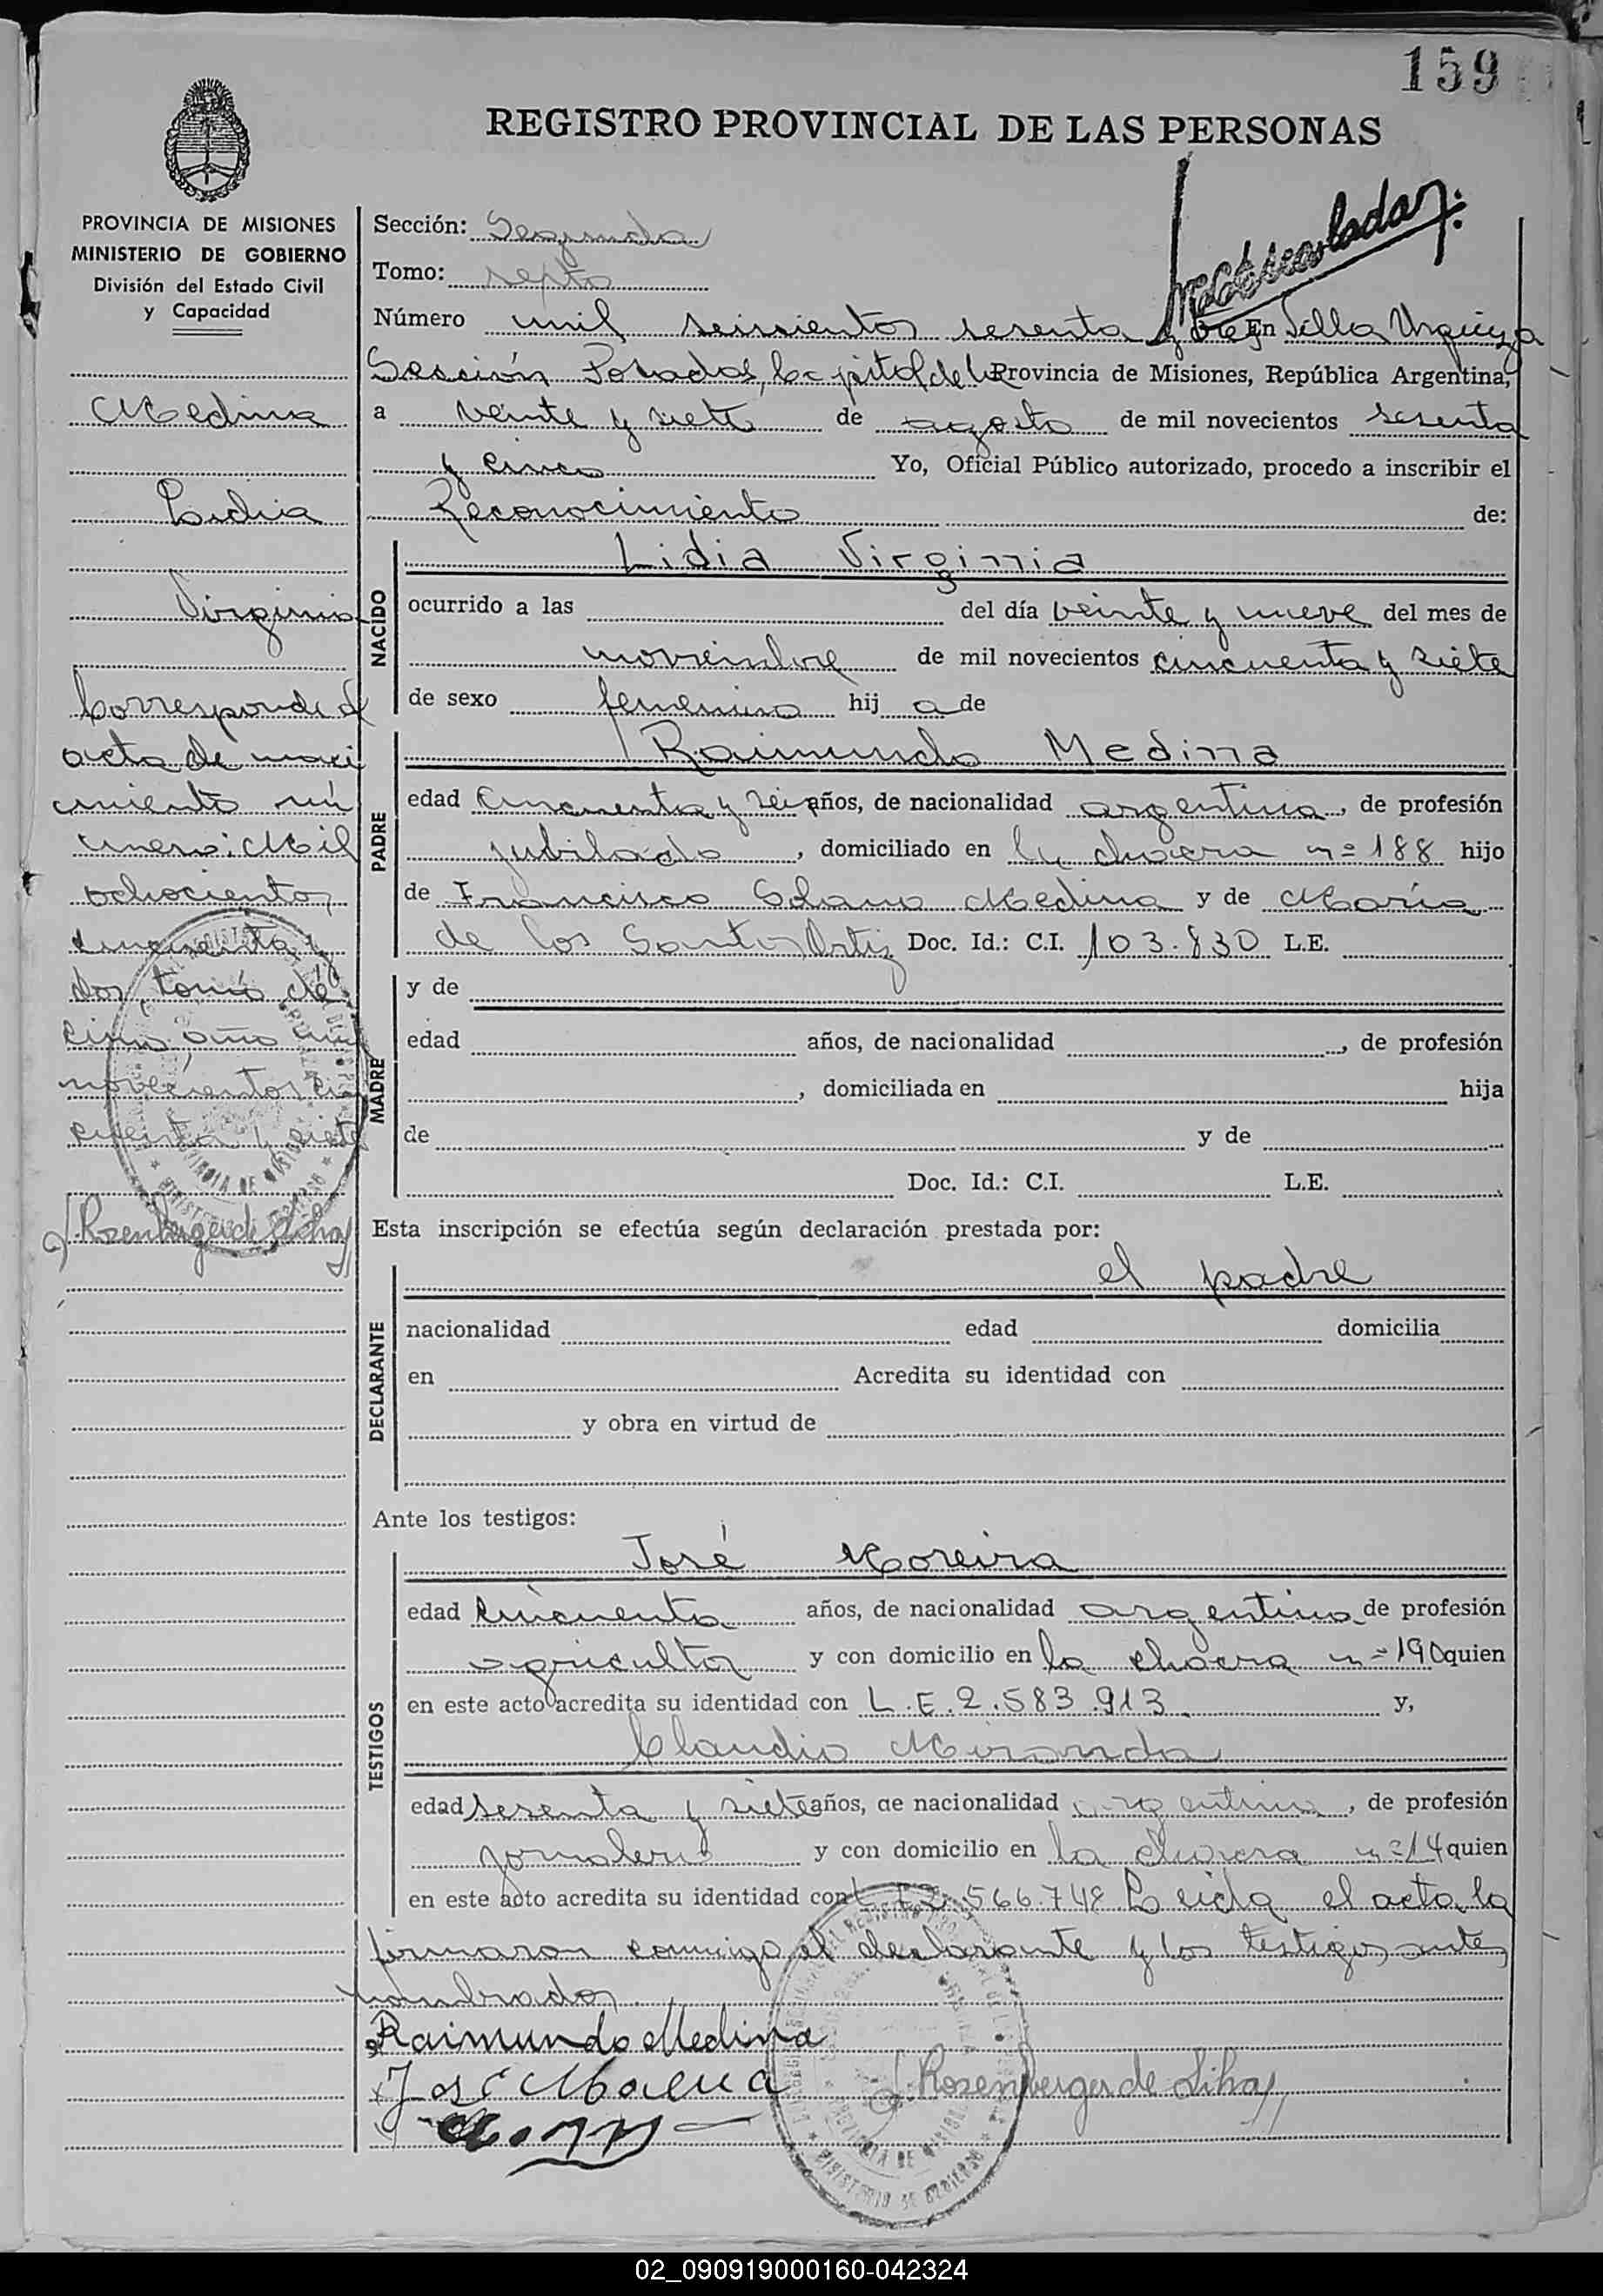 159
REGISTRO PROVINCIAL DE LAS PERSONAS
PROVINCIA DE MISIONES
MINISTERIO DE GOBIERNO
División del Estado Civil
y Capacidad
Medina
Lidia
Virginia
Corresponde al
acta de naci
miento nú
mero: Mil
ochocientos
cincuenta y
dos, tomo dé
cimo año mil
novecientos cin
cuenta y siete
Rosenberger de Lihoy
Sección: Segunda
Tomo: septo
Número mil seiscientos sesenta y En Villa Urquiza
Sección Posadas, Capital de la Provincia de Misiones, República Argentina,
a veinte y siete de agosto de mil novecientos sesenta
y cinco Yo, Oficial Público autorizado, procedo a inscribir el
Reconocimiento de:
NACIDO
Lidia Virginia
ocurrido a las del día veinte y nueve del mes de
noviembre de mil novecientos cincuenta y siete
de sexo femenino hij a de
PADRE
Raimundo Medina
edad Cincuenta y seis años, de nacionalidad argentina, de profesión
jubilado, domiciliado en la chacra nº 188 hijo
de Francisco Solano Medina y de María
de los Santos Ortiz Doc. Id.: C.I. 103.830 L.E.
MADRE
y de
edad años, de nacionalidad , de profesión
, domiciliada en hija
de y de
Doc. Id.: C.I. L.E.
Esta inscripción se efectúa según declaración prestada por:
DECLARANTE
el padre
nacionalidad edad domicilia
en Acredita su identidad con
y obra en virtud de
Ante los testigos:
TESTIGOS
José Moreira
edad cincuenta años, de nacionalidad argentino de profesión
agricultor y con domicilio en la chacra nº 190 quien
en este acto acredita su identidad con L.E.2.583.913 y,
Claudio Miranda
edad sesenta y siete años, de nacionalidad argentina, de profesión
jornalero y con domicilio en la chacra nº 14 quien
en este acto acredita su identidad con 2.566.748 Leida el acta, la
firmaron conmigo el declarante y los testigos antes
nombrados.
Raimundo Medina
José Moreira
Rosenberger de Lihoy
02_090919000160-042324